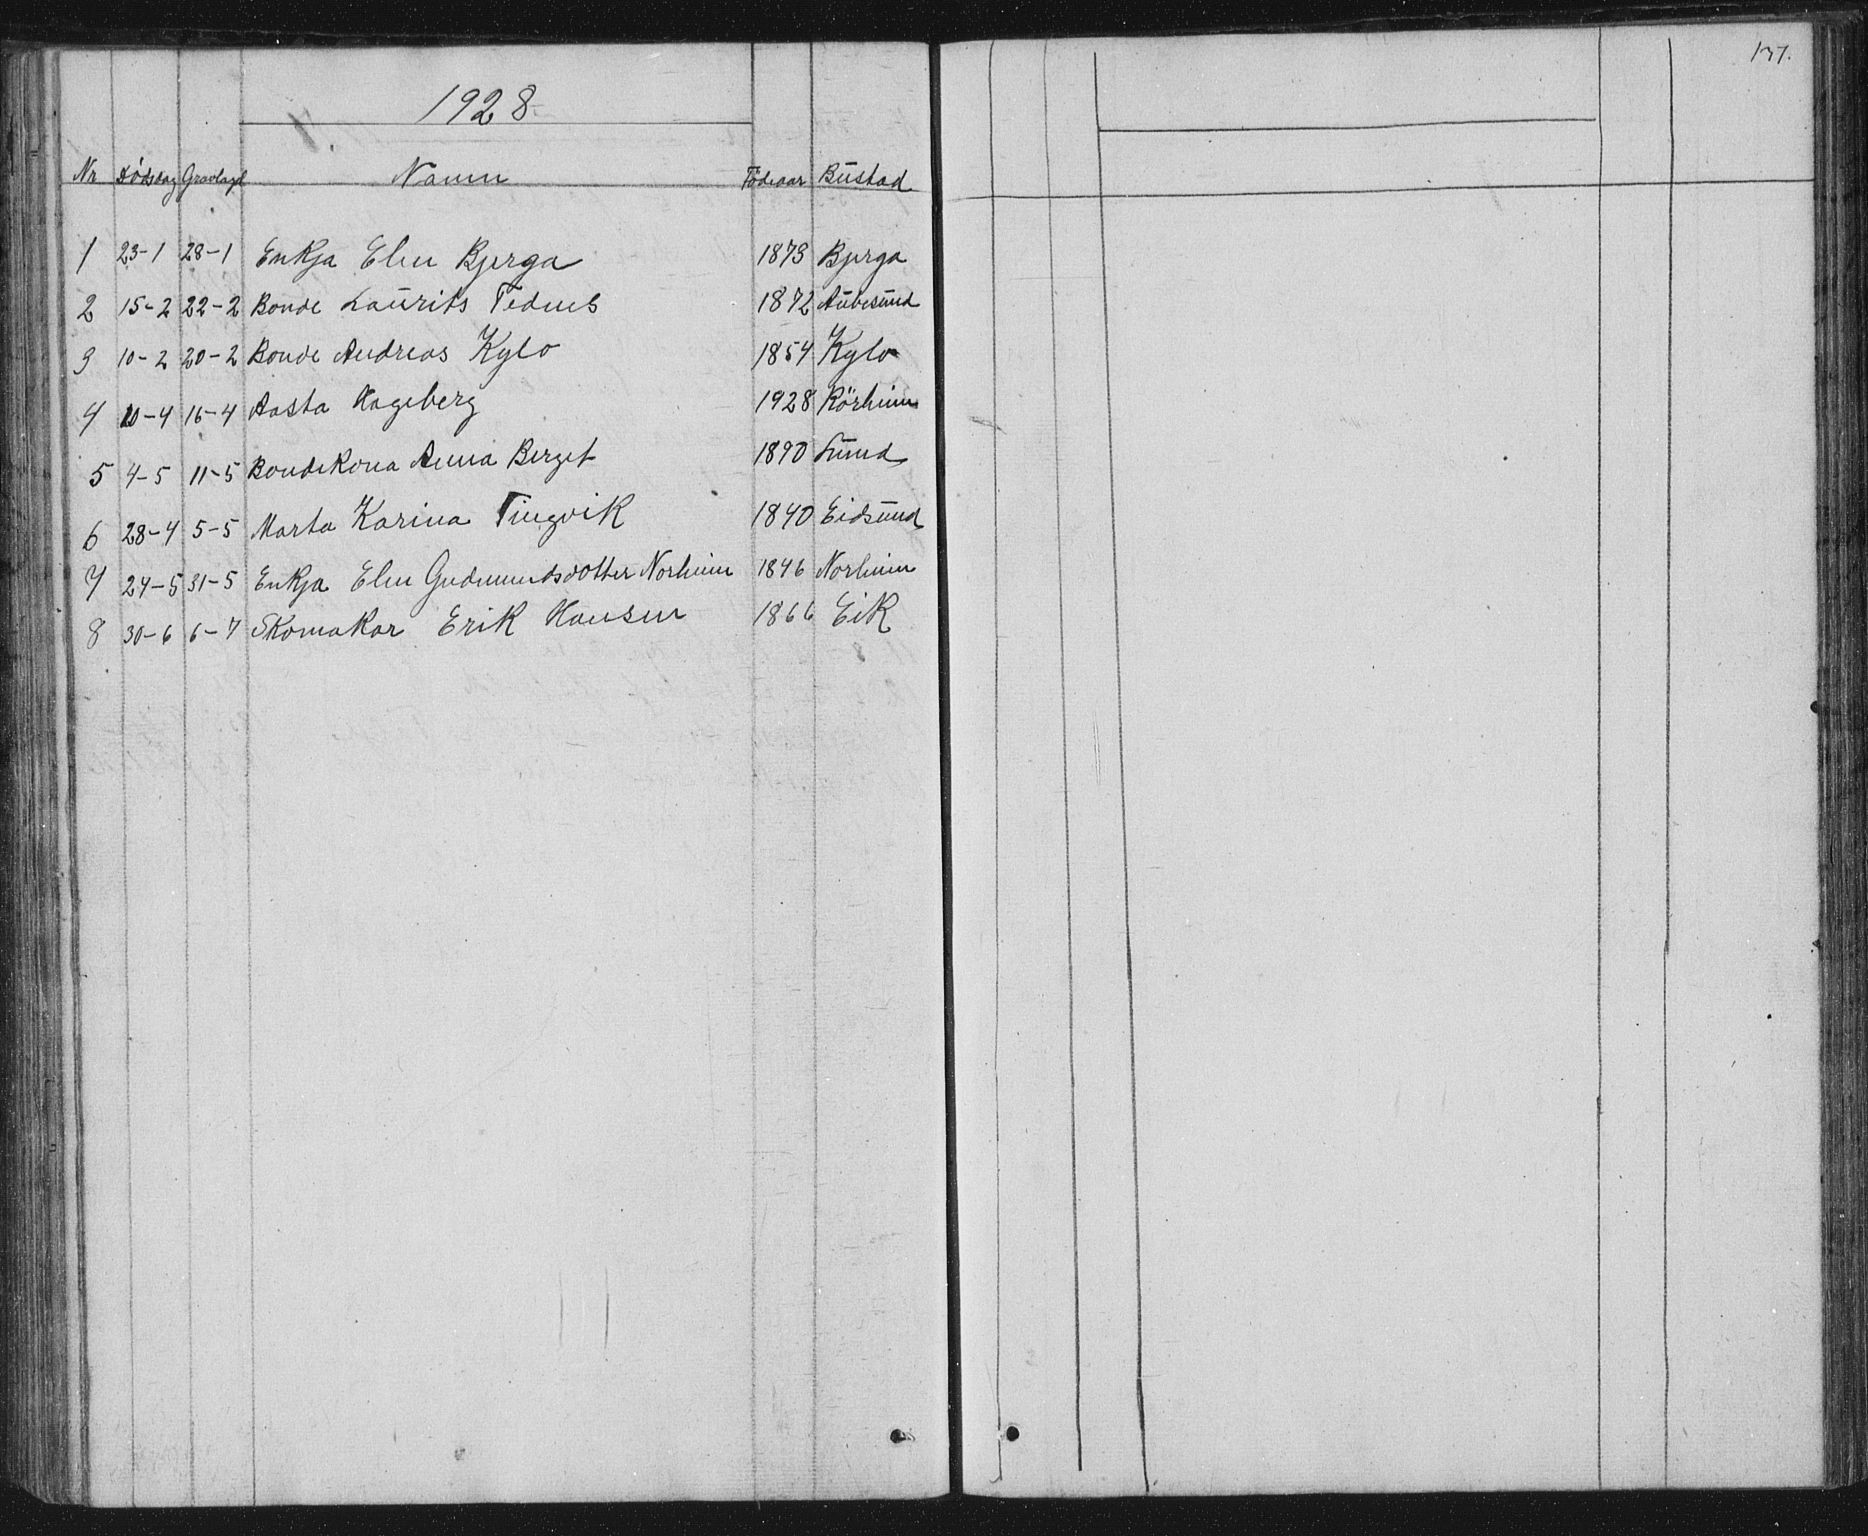 137.
1928
Nr Dødsdag Gravlagd Namn Födeaar Bustad
1 23-1 28-1 Enkja Elen Bjerga 1873 Bjerga
2 15-2 22-2 Bonde Laurits Tednes 1872 Aubesund
3 10-2 20-2 Bonde Andreas Kylo 1854 Kylo
4 10-4 16-4 Aasta Hageberg 1928 Rörheim
5 4-5 11-5 Bondekona Anna Berget 1890 Sund
6 28-4 5-5 Marta Karina Tingvik 1840 Eidsund
7 24-5 31-5 Enkja Elen Gudmundsdotter Norheim 1846 Norheim
8 30-6 6-7 Skomakar Erik Hansen 1866 Eik